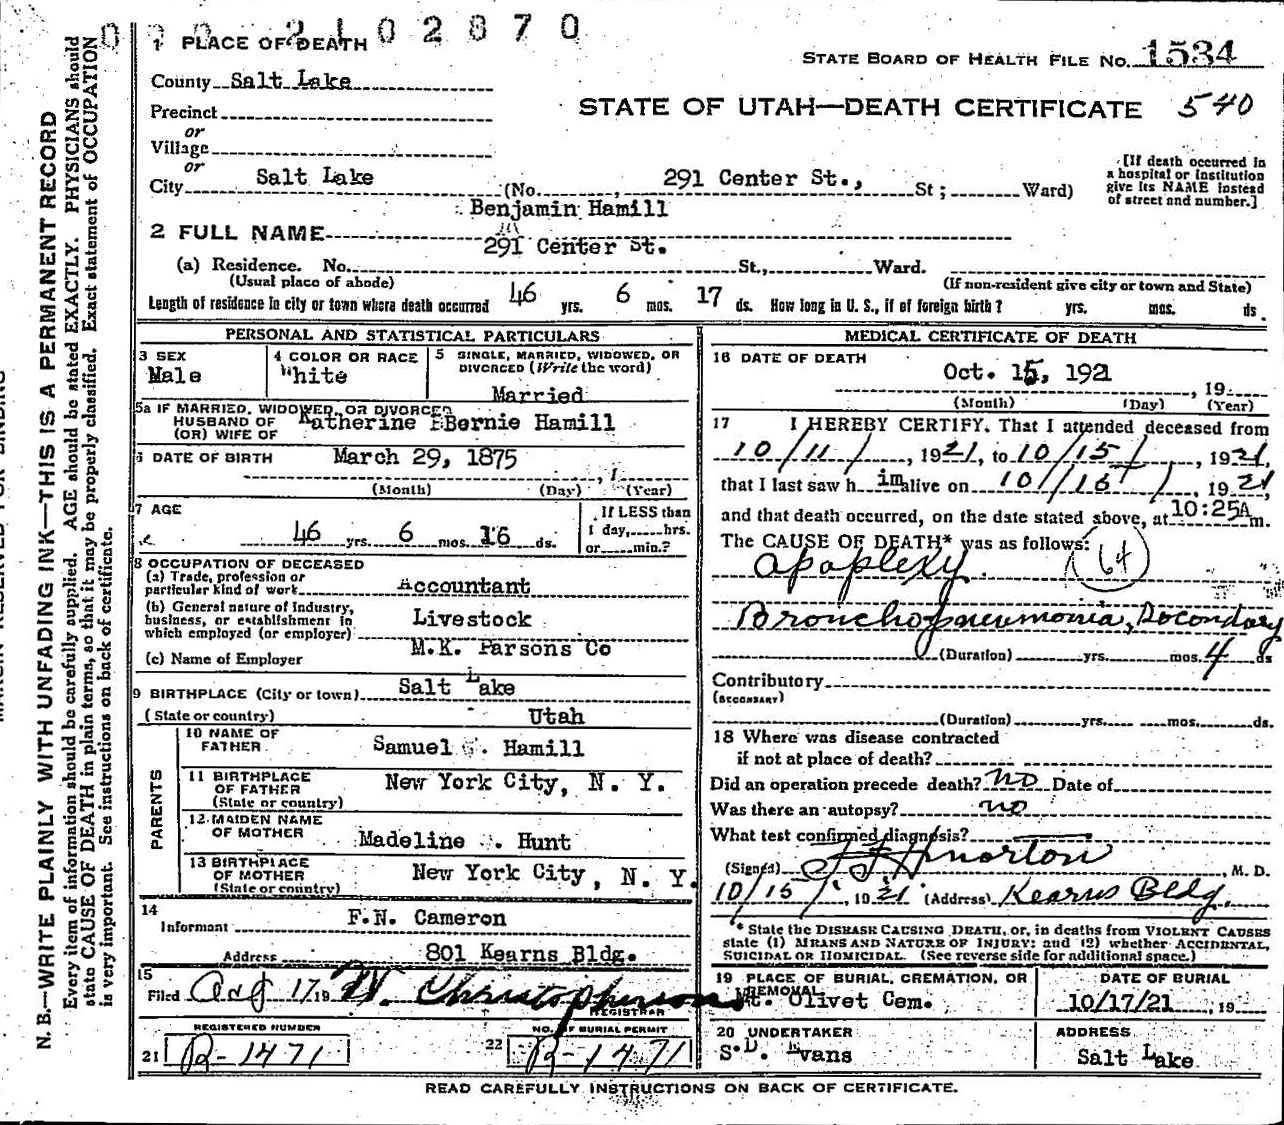 0 0 0 2 1 0 2 8 7 0
1 PLACE OF DEATH
STATE BOARD OF HEALTH FILE No. 1534
County Salt Lake
STATE OF UTAH—DEATH CERTIFICATE 540
Precinct
or
Village
or
City Salt Lake (No. 291 Center St., St; Ward)
[If death occurred in
a hospital or institution
give its NAME instead
of street and number.]
Benjamin Hamill
2 FULL NAME
291 Center St.
(a) Residence. No. St., Ward.
(Usual place of abode) (If non-resident give city or town and State)
Length of residence in city or town where death occurred 46 yrs. 6 mos. 17 ds. How long in U. S., if of foreign birth? yrs. mos. ds.
PERSONAL AND STATISTICAL PARTICULARS
3 SEX
Male
4 COLOR OR RACE
White
5 SINGLE, MARRIED, WIDOWED, OR
DIVORCED (Write the word)
Married
5a IF MARRIED, WIDOWED, OR DIVORCED
HUSBAND OF Katherine Bernie Hamill
(OR) WIFE OF
6 DATE OF BIRTH March 29, 1875
, 1
(Month) (Day) (Year)
7 AGE
46 yrs. 6 mos. 16 ds.
If LESS than
1 day, hrs.
or min.?
8 OCCUPATION OF DECEASED
(a) Trade, profession or
particular kind of work Accountant
(b) General nature of Industry,
business, or establishment in
which employed (or employer) Livestock
M.K. Parsons Co
(c) Name of Employer
9 BIRTHPLACE (City or town) Salt Lake
(State or country) Utah
PARENTS
10 NAME OF
FATHER Samuel G. Hamill
11 BIRTHPLACE
OF FATHER New York City, N. Y.
(State or country)
12 MAIDEN NAME
OF MOTHER Madeline Hunt
13 BIRTHPLACE
OF MOTHER New York City, N. Y.
(State or country)
14
Informant F.N. Cameron
Address 801 Kearns Bldg.
15
Filed Oct 17 19 W. Christopherson
REGISTRAR
REGISTERED NUMBER
21 R-1471
NO. OF BURIAL PERMIT
22 R-1471
MEDICAL CERTIFICATE OF DEATH
16 DATE OF DEATH
Oct. 15, 1921
, 19
(Month) (Day) (Year)
17 I HEREBY CERTIFY, That I attended deceased from
10/11/, 1921, to 10/15/, 1921,
that I last saw him alive on 10/15/, 1921
and that death occurred, on the date stated above, at 10:25A m.
The CAUSE OF DEATH* was as follows:
apoplexy 64
Bronchopneumonia, Secondary
(Duration) yrs. mos. 4 ds
Contributory
(SECONDARY)
(Duration) yrs. mos. ds.
18 Where was disease contracted
if not at place of death?
Did an operation precede death? no Date of
Was there an autopsy? no
What test confirmed diagnosis?
(Signed) , M. D.
10/15/, 1921 (Address) Kearns Bldg.
* State the DISEASE CAUSING DEATH, or, in deaths from VIOLENT CAUSES
state (1) MEANS AND NATURE OF INJURY: and (2) whether ACCIDENTAL,
SUICIDAL OR HOMICIDAL. (See reverse side for additional space.)
19 PLACE OF BURIAL, CREMATION, OR
REMOVAL
Mt. Olivet Cem.
DATE OF BURIAL
10/17/21, 19
20 UNDERTAKER
S.D. Evans
ADDRESS
Salt Lake
READ CAREFULLY INSTRUCTIONS ON BACK OF CERTIFICATE.
N. B.—WRITE PLAINLY WITH UNFADING INK—THIS IS A PERMANENT RECORD
Every item of information should be carefully supplied. AGE should be stated EXACTLY. PHYSICIANS should
state CAUSE OF DEATH in plain terms, so that it may be properly classified. Exact statement of OCCUPATION
is very important. See instructions on back of certificate.
MARGIN RESERVED FOR BINDING